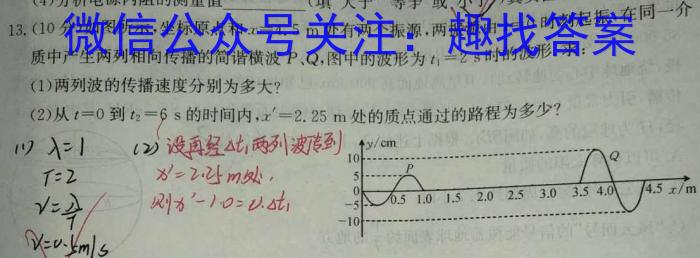 (4)分析电源内阻的测量值 (填"大于""等于"或"小于")真实
13.(10分 坐标原点和 5 m处有两个振源,两 在同一介
微信公众号关注：趣找答案
质中产生两列相向传播的简谐横波P、Q,图中的波形为t₁=2 s时的波形,求:
(1)两列波的传播速度分别为多大?
(2)从t=0到t₂=6 s的时间内,x′=2.25 m处的质点通过的路程为多少?
(1) λ=1
T=2
v=λ/T
v=0.5m/s
(2) 设再经Δt₁两列波传到
x′=2.25m处,
则x′-1.0=v·Δt₁
y/cm
10
5
0
-5
-10
P
Q
0.5 1.0 1.5 2.0 2.5 3.0 3.5 4.0 4.5 x/m